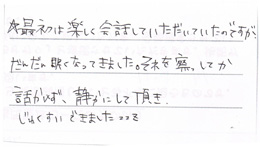 最初は楽しく会話していただいていたのですが、
だんだん眠くなってきました。それを察してか
話かけず、静かにして頂き、
じゅくすいできました zzz